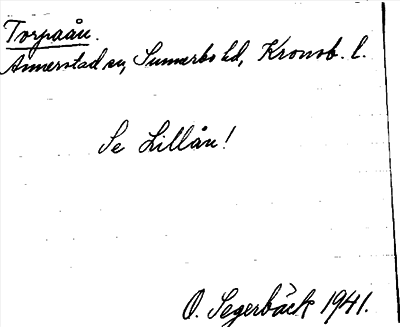 Torpaån.
Annerstad sn, Sunnerbo hd, Kronob. l.
Se Lillån!
O. Segerbäck 1941.